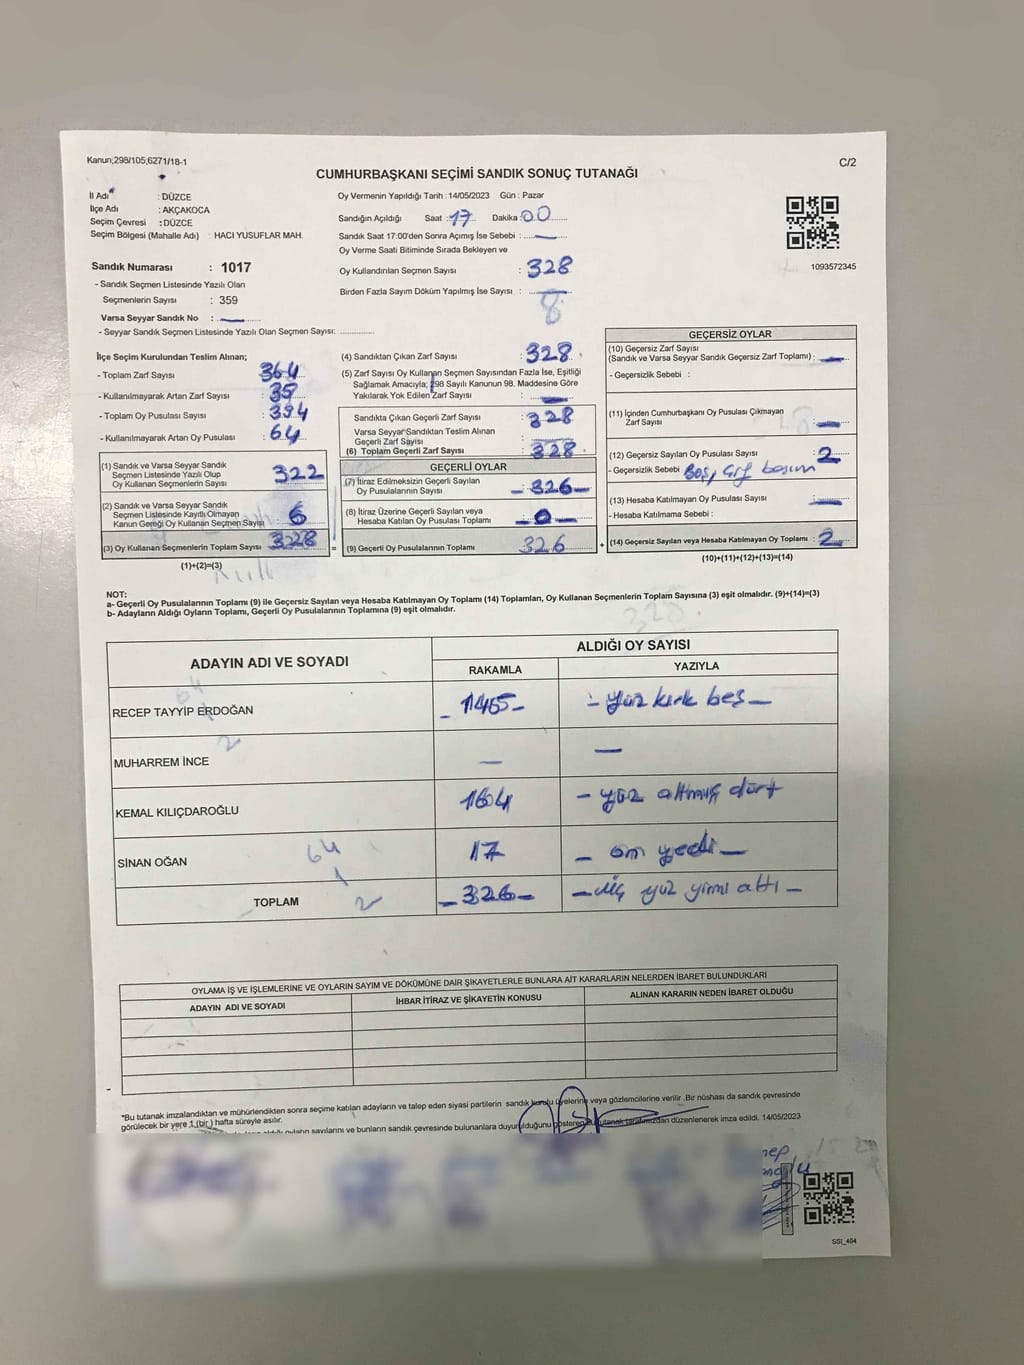 Kanun;298/105,6271/18-1
C/2
CUMHURBAŞKANI SEÇİMİ SANDIK SONUÇ TUTANAĞI
İl Adı : DÜZCE
İlçe Adı : AKÇAKOCA
Seçim Çevresi : DÜZCE
Seçim Bölgesi (Mahalle Adı) : HACI YUSUFLAR MAH.
Oy Vermenin Yapıldığı Tarih : 14/05/2023 Gün : Pazar
Sandığın Açıldığı Saat : 17 Dakika : 00
Sandık Saat 17:00'den Sonra Açımış İse Sebebi : —
Oy Verme Saati Bitiminde Sırada Bekleyen ve
Oy Kullandırılan Seçmen Sayısı : 328
Birden Fazla Sayım Döküm Yapılmış İse Sayısı : —
8
1093572345
Sandık Numarası : 1017
- Sandık Seçmen Listesinde Yazılı Olan
Seçmenlerin Sayısı : 359
Varsa Seyyar Sandık No : —
- Seyyar Sandık Seçmen Listesinde Yazılı Olan Seçmen Sayısı: ..............
İlçe Seçim Kurulundan Teslim Alınan;
- Toplam Zarf Sayısı : 364
- Kullanılmayarak Artan Zarf Sayısı : 35
- Toplam Oy Pusulası Sayısı : 394
- Kullanılmayarak Artan Oy Pusulası : 64
(1) Sandık ve Varsa Seyyar Sandık
Seçmen Listesinde Yazılı Olup
Oy Kullanan Seçmenlerin Sayısı : 322
(2) Sandık ve Varsa Seyyar Sandık
Seçmen Listesinde Kayıtlı Olmayan
Kanun Gereği Oy Kullanan Seçmen Sayısı : 6
(3) Oy Kullanan Seçmenlerin Toplam Sayısı : 328
(1)+(2)=(3)
(4) Sandıktan Çıkan Zarf Sayısı : 328
(5) Zarf Sayısı Oy Kullanan Seçmen Sayısından Fazla İse, Eşitliği
Sağlamak Amacıyla; 298 Sayılı Kanunun 98. Maddesine Göre
Yakılarak Yok Edilen Zarf Sayısı : —
Sandıkta Çıkan Geçerli Zarf Sayısı : 328
Varsa Seyyar Sandıktan Teslim Alınan
Geçerli Zarf Sayısı :
(6) Toplam Geçerli Zarf Sayısı : 328
GEÇERLİ OYLAR
(7) İtiraz Edilmeksizin Geçerli Sayılan
Oy Pusulasının Sayısı : — 326 —
(8) İtiraz Üzerine Geçerli Sayılan veya
Hesaba Katılan Oy Pusulası Toplamı : — 0 —
= (9) Geçerli Oy Pusulalarının Toplamı 326 +
GEÇERSİZ OYLAR
(10) Geçersiz Zarf Sayısı
(Sandık ve Varsa Seyyar Sandık Geçersiz Zarf Toplamı) : —
- Geçersizlik Sebebi :
(11) İçinden Cumhurbaşkanı Oy Pusulası Çıkmayan
Zarf Sayısı : —
(12) Geçersiz Sayılan Oy Pusulası Sayısı : 2
- Geçersizlik Sebebi Boş, çift basım
(13) Hesaba Katılmayan Oy Pusulası Sayısı : —
- Hesaba Katılmama Sebebi :
(14) Geçersiz Sayılan veya Hesaba Katılmayan Oy Toplamı : 2
(10)+(11)+(12)+(13)=(14)
NOT:
a- Geçerli Oy Pusulalarının Toplamı (9) ile Geçersiz Sayılan veya Hesaba Katılmayan Oy Toplamı (14) Toplamları, Oy Kullanan Seçmenlerin Toplam Sayısına (3) eşit olmalıdır. (9)+(14)=(3)
b- Adayların Aldığı Oyların Toplamı, Geçerli Oy Pusulalarının Toplamına (9) eşit olmalıdır.
328
ADAYIN ADI VE SOYADI
ALDIĞI OY SAYISI
RAKAMLA YAZIYLA
RECEP TAYYİP ERDOĞAN — 145 — — yüz kırk beş —
MUHARREM İNCE — —
KEMAL KILIÇDAROĞLU 164 — yüz altmış dört
SİNAN OĞAN 17 — on yedi —
64
2
TOPLAM — 326 — — üç yüz yirmi altı —
OYLAMA İŞ VE İŞLEMLERİNE VE OYLARIN SAYIM VE DÖKÜMÜNE DAİR ŞİKAYETLERLE BUNLARA AİT KARARLARIN NELERDEN İBARET BULUNDUKLARI
ADAYIN ADI VE SOYADI İHBAR İTİRAZ VE ŞİKAYETİN KONUSU ALINAN KARARIN NEDEN İBARET OLDUĞU
*Bu tutanak imzalandıktan ve mühürlendikten sonra seçime katılan adayların ve talep eden siyasi partilerin sandık kurulu üyelerine veya gözlemcilerine verilir .Bir nüshası da sandık çevresinde
görülecek bir yere 1 (bir ) hafta süreyle asılır.
sayılarını ve bunların sandık çevresinde bulunanlara duyurulduğunu gösteren düzenlenerek imza edildi. 14/05/2023
SSI_404